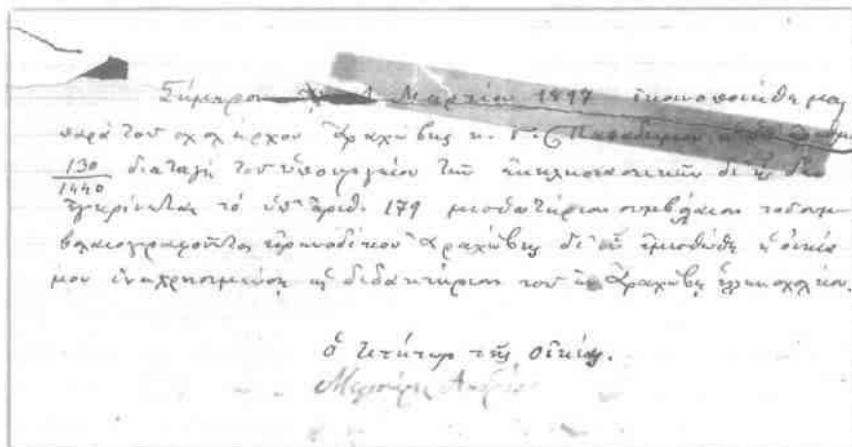 Σήμερον τῇ 1 Μαρτίου 1897 ἐκοινοποιήθη μοι
παρὰ τοῦ σχολάρχου Ἀραχώβης κ. Γ. Παπαδημητρίου
130/1440 διαταγὴ τοῦ ὑπουργείου τῶν ἐκκλησιαστικῶν δι' ἧς
ἐγκρίνεται τὸ ὑπ' ἀριθ. 179 μισθωτήριον συμβόλαιον τοῦ συμ
βολαιογραφοῦντος εἰρηνοδίκου Ἀραχώβης δι' οὗ ἐμισθώθη ἡ οἰκία
μου ἵνα χρησιμεύσῃ ὡς διδακτήριον τοῦ ἐν Ἀραχώβῃ ἑλλην. σχολείου.
ὁ κτήτωρ τῆς οἰκίας.